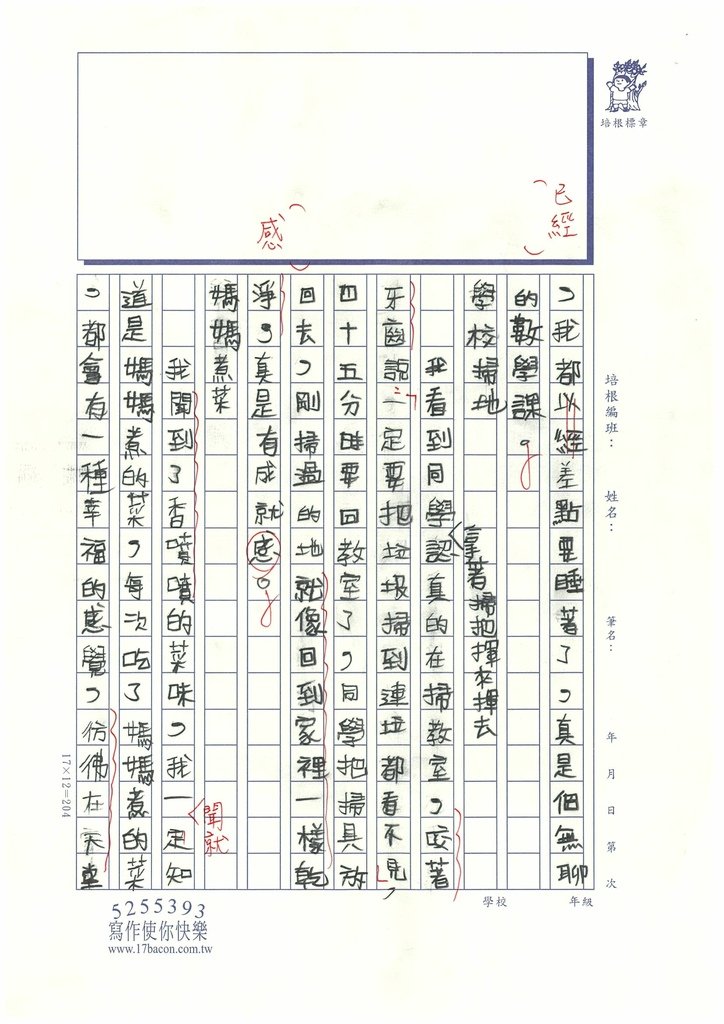 培根標章
已經
感
，我都以經差點要睡著了，真是個無聊
的數學課。
學校掃地
我看到同學認真的在掃教室，咬著
拿著掃把揮來揮去
牙齒説一定要把垃圾掃到連垃都看不見，
四十五分時要回教室了，同學把掃具放
回去，剛掃過的地就像回到家裡一樣乾
淨，真是有成就感。
媽媽煮菜
我聞到了香噴噴的菜味，我一定知
聞就
道是媽媽煮的菜，每次吃了媽媽煮的菜
，都會有一種幸福的感覺，彷彿在天堂
培根編班：
姓名：
筆名：
年 月 日 第 次
學校
年級
17×12=204
5255393
寫作使你快樂
www.17bacon.com.tw